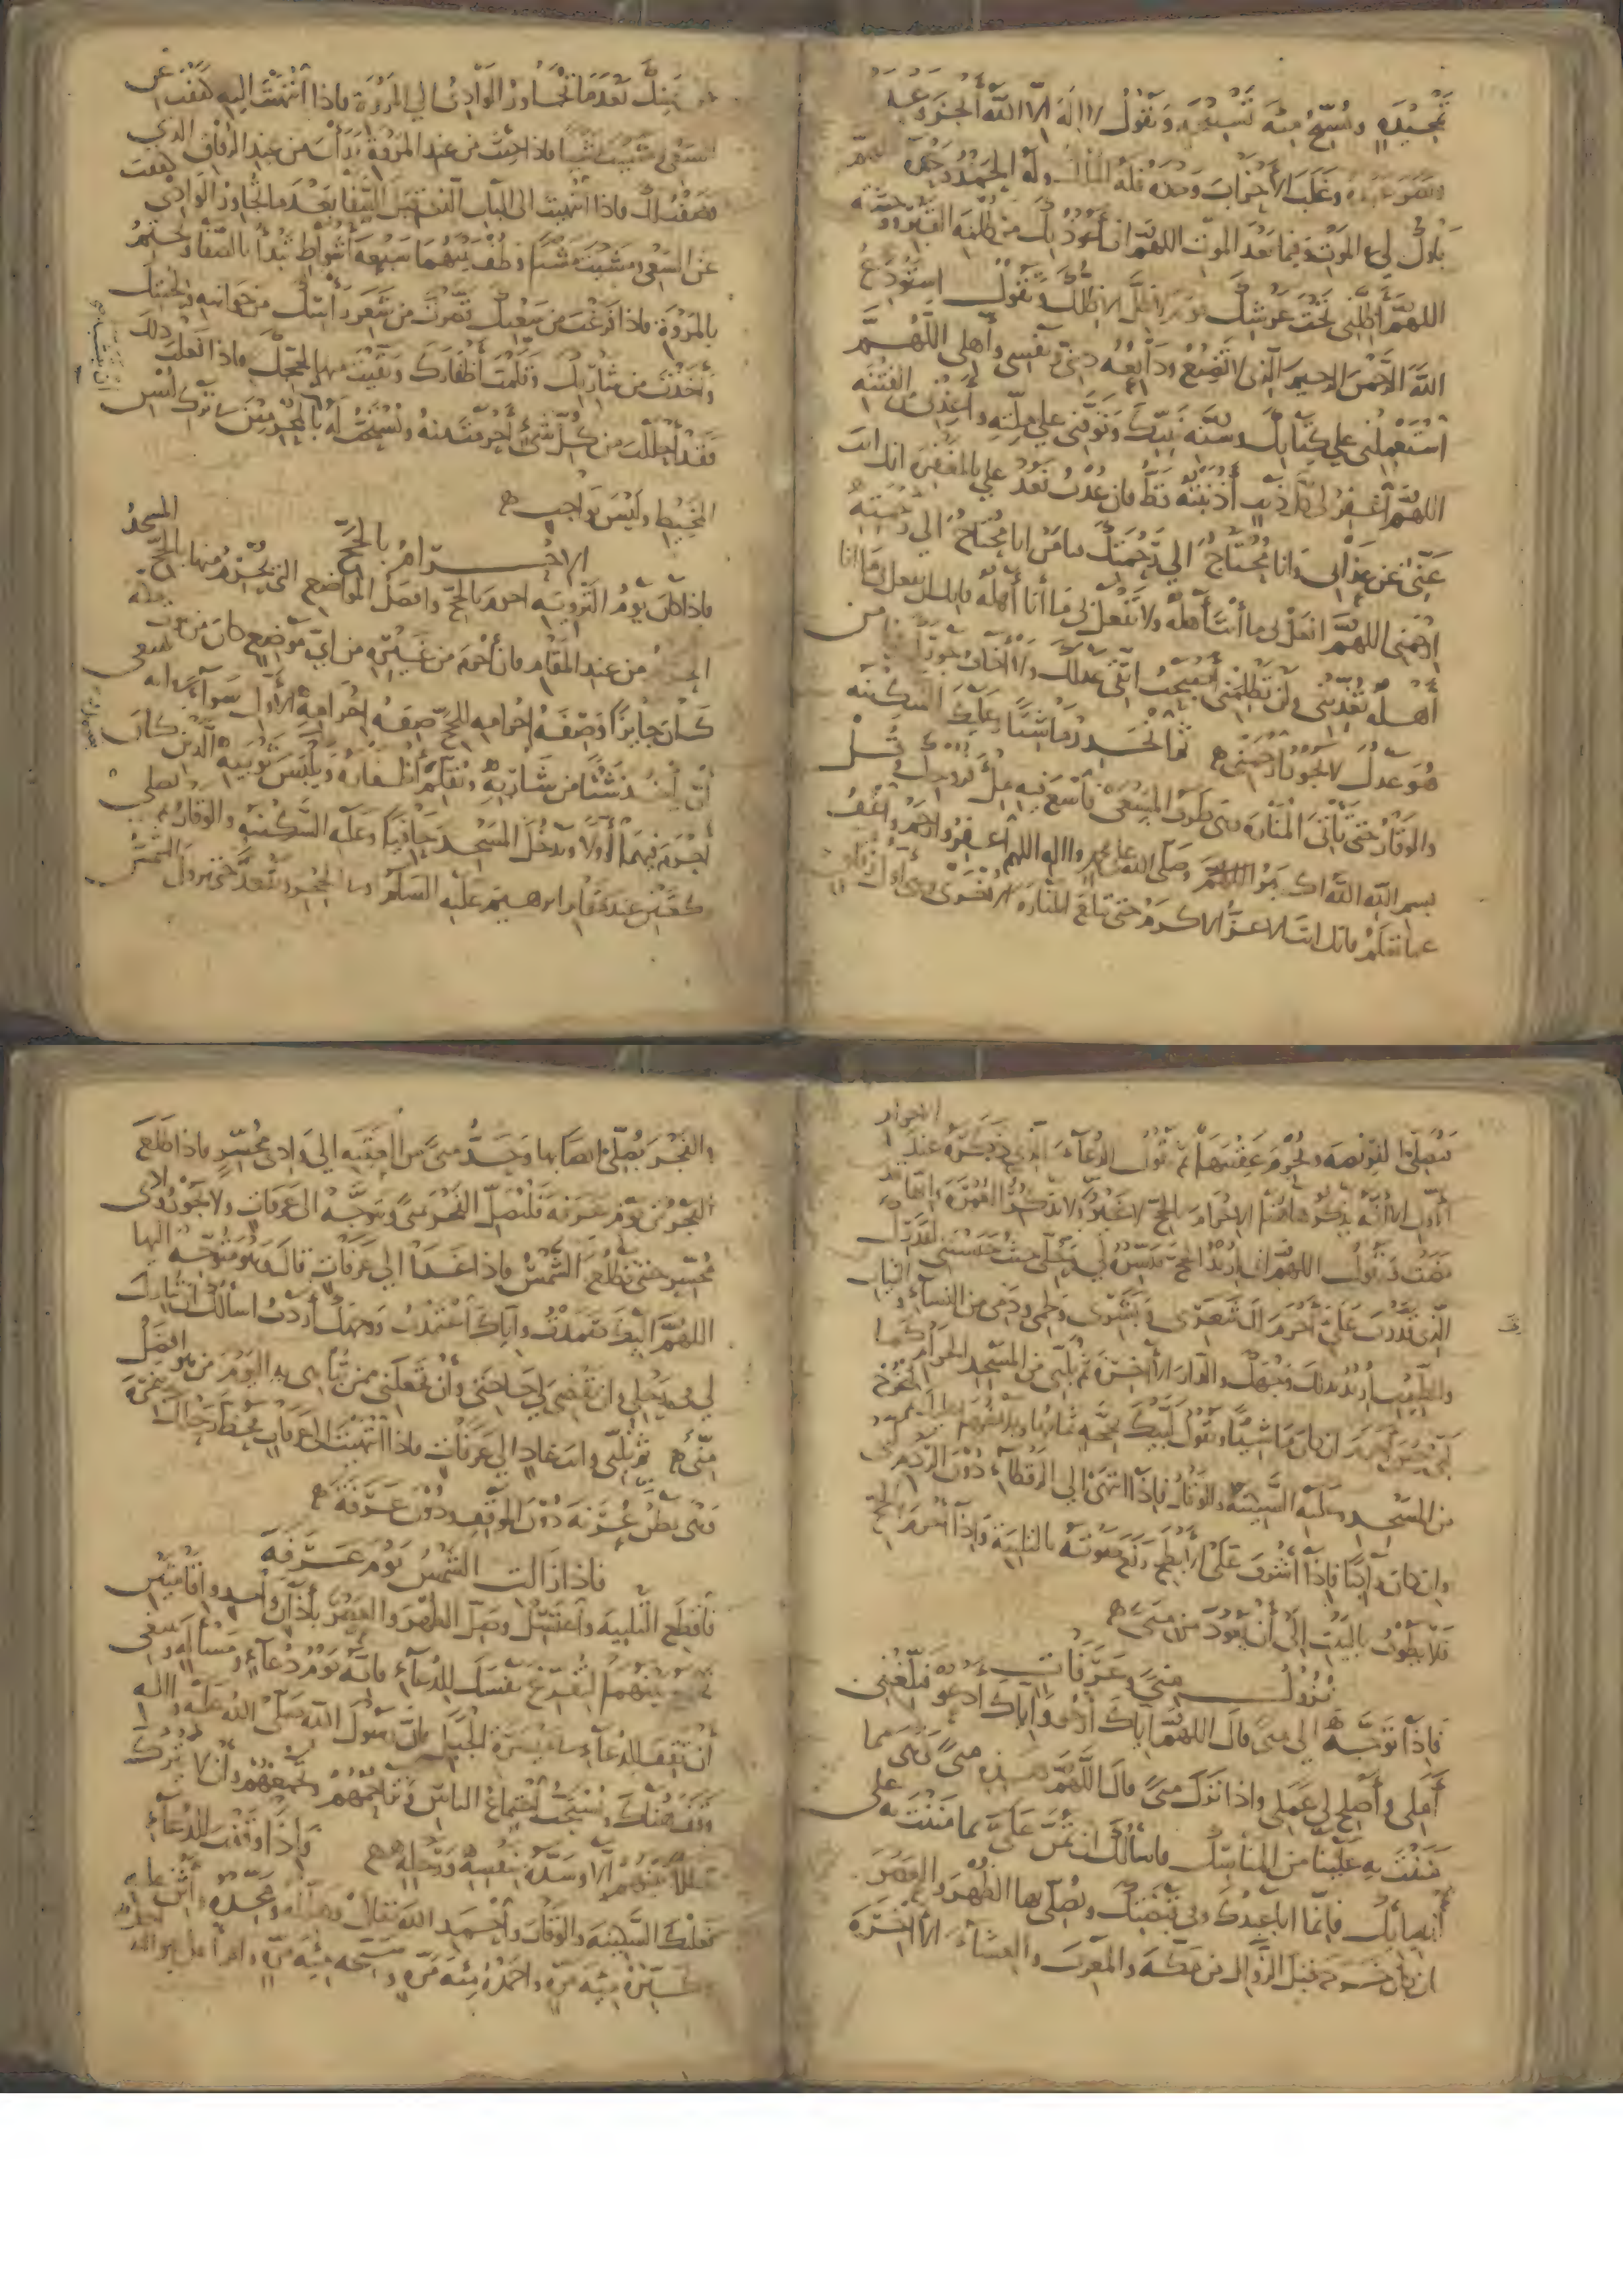 تحميدة وتسبح مئة تسبيحة وتقول لا اله الا الله أنجز وعده
ونصر عبده وغلب الأحزاب وحده فله الملك وله الحمد وحده اللهم
بارك لي في الموت وفيما بعد الموت اللهم اني أعوذ بك من ظلمة القبر ووحشته
اللهم أظلني تحت عرشك يوم لا ظل الا ظلك وتقول استودع
الله الرحمن الرحيم الذي لا تضيع ودايعه ديني ونفسي وأهلي اللهم
استعملني علي كتابك وسنة نبيك وتوفني علي ملته واعذني من الفتنه
اللهم اغفر لي كل ذنب أذنبته قط فان عدت فعد علي بالمغفرة انك انت
غني عن عذابي وانا محتاج الي رحمتك فيا من انا محتاج الي رحمته
ارحمني اللهم افعل بي ما أنت أهله ولا تفعل بي ما أنا أهله فانك ان تفعل بي ما انا
أهله تعذبني ولن تظلمني أصبحت اتقي عدلك ولا أخاف جورك فيا من
هو عدل لا يجور ارحمني ثم انحدر ماشيا وعليك السكينه
والوقار حتي تأتي المنارة وهي طرف المسعى فاسع فيه ملء فروجك وقل
بسم الله الله اكبر اللهم وصلى الله على محمد واله اللهم اغفر وارحم واعف
عما تعلم فانك انت الاعز الاكرم حتى تبلغ المنارة الاخرى وهي أول زقاق
يمينك بعد ما تجاوز الوادي الي المروة فاذا انتهيت اليه كففت عن
السعي ومشيت مشيا فاذا جئت من عند المروة بدأت من عند الزقاق الذي
وصفت لك فاذا انتهيت الى الباب الذي قبل الصفا بعد ما تجاوز الوادي كففت
عن السعي ومشيت مشيا وطف بينهما سبعة أشواط تبدأ بالصفا وتختم
بالمروة فاذا فرغت من سعيك قصرت من شعر رأسك من جوانبه ولحيتك
وأخذت من شاربك وقلمت أظفارك وبقيت منها لحجك فاذا فعلت ذلك
فقد أحللت من كل شئ أحرمت منه ويستحب له بالمحرمين ترك لبس
المخيط وليس بواجب
الاحرام بالحج
فاذا كان يوم التروية احرم بالحج وافضل المواضع التي يحرم منها بالحج المسجد
الحرام من عند المقام فان أحرم من غيره من اي موضع كان من بيوت مكة
كان جايزا وصفة إحرامه للحج صفة احرامه الأول سواء
أن يأخذ شيئا من شاربه ويقلم أظفاره ويلبس ثوبيه الذين كان
أحرم فيهما أولا ويدخل المسجد حافيا وعليه السكينه والوقار ثم يصلي
ركعتين عند مقام ابراهيم عليه السلام او في الحجر ويقعد حتى تزول الشمس
فيصلي الفريضة ويحرم عقيبها ثم يقول الدعاء الذي ذكره عند الاحرام
الأول الا أنه يذكر هاهنا الإحرام بالحج لا غير ولا يذكر العمرة وانها قد
مضت فيقول اللهم اني أريد الحج فيسره لي وحلني حيث حبستني لقدرك
الذي قدرت علي أحرم لك شعري وبشري ولحمي ودمي من النساء والثياب
والطيب أريد بذلك وجهك والدار الآخرة ثم يلبي من المسجد الحرام كما
لبي حين أحرم ان كان ماشيا ويقول لبيك بحجة تمامها وبلاغها عليك ثم ليخرج
من المسجد وعليه السكينة والوقار فاذا انتهى الي الرقطاء دون الردم لبى
وان كان راكبا فاذا أشرف على الأبطح رفع صوته بالتلبية واذا أحرم بالحج
فلا يطوف بالبيت الى أن يعود من منى
نزول منى وعرفات
فاذا توجه الي منى قال اللهم اياك أرجو واياك ادعو فبلغني
أملي وأصلح لي عملي واذا نزل منى قال اللهم هذه منى وهي مما
مننت به علينا من المناسك فاسالك ان تمن علي بما مننت به على
أنبيائك فانما انا عبدك وفي قبضتك ويصلي بها الظهر والعصر
ان كان خروجه قبل الزوال من مكة والمغرب والعشاء الآخرة
والفجر يصلى ايضا بها وحد منى من العقبه الي وادي محسر فاذا طلع
الفجر من يوم عرفة فليصل الفجر بمنى ويتوجه الى عرفات ولا يجوز وادي
محسر حتى تطلع الشمس فاذا غدا الي عرفات قال وهو متوجه اليها
اللهم اليك صمدت واياك اعتمدت ووجهك أردت اسألك ان تبارك
لي في رحلي وان تقضي لي حاجتي وأن تجعلني ممن تباهي به اليوم من هو افضل
مني ثم يلبي وانت غاد الي عرفات فاذا انتهيت الى عرفات فحط رحلك بنمرة
وهي بطن عرنة دون الموقف ودون عرفة
فاذا زالت الشمس يوم عرفة
فاقطع التلبية واغتسل وصل الظهر والعصر بأذان واحد واقامتين
تجمع بينهما لتفرغ نفسك للدعاء فانه يوم دعاء ومسألة وينبغي
أن تقف للدعاء في ميسرة الجبل فان رسول الله صلى الله عليه واله
وقف هناك ويستحب اجتماع الناس وتزاحمهم وتجمعهم وأن لا يترك
خللا بينهم الا وسده بنفسه ورحله واذا وقفت للدعاء
فعليك السكينه والوقار وأحمد الله تعالى وهلله ومجده واثن عليه
وكبره مئة مرة واحمده مئة مرة وسبحه مئة مرة واقرأ قل هو الله